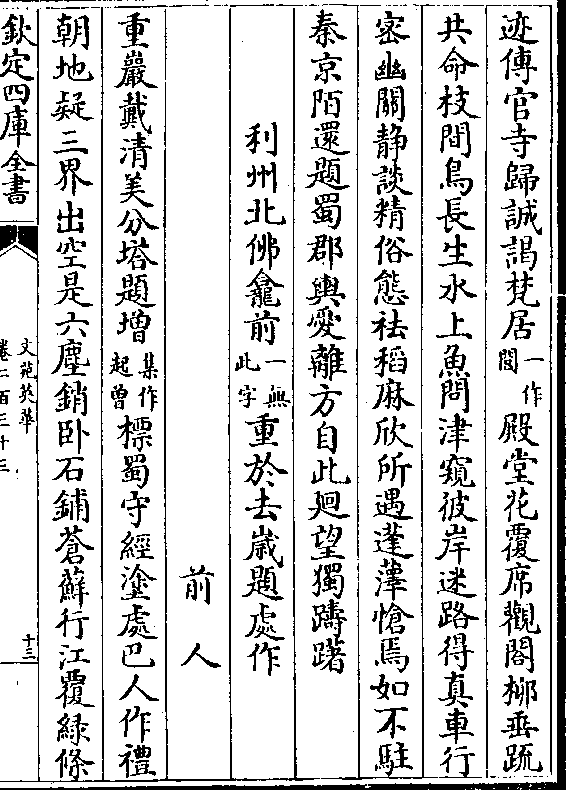 迹傳官寺歸誠謁梵居一作閣殿堂花覆席觀閣柳垂䟽
共命枝間鳥長生水上魚問津窺彼岸迷路得真車行
密幽關静談精俗態袪稻麻欣所遇蓬蘀愴焉如不駐
秦京陌還題蜀郡輿愛離方自此廻望獨躊躇
利州北佛龕前一無此字重於去歳題處作
前人
重巖戴清美分塔題増集作起曽標蜀守經塗處巴人作禮
朝地疑三界出空是六塵銷卧石鋪蒼蘇行江覆緑條
欽定四庫全書
文苑英華
卷二百三十三
十三